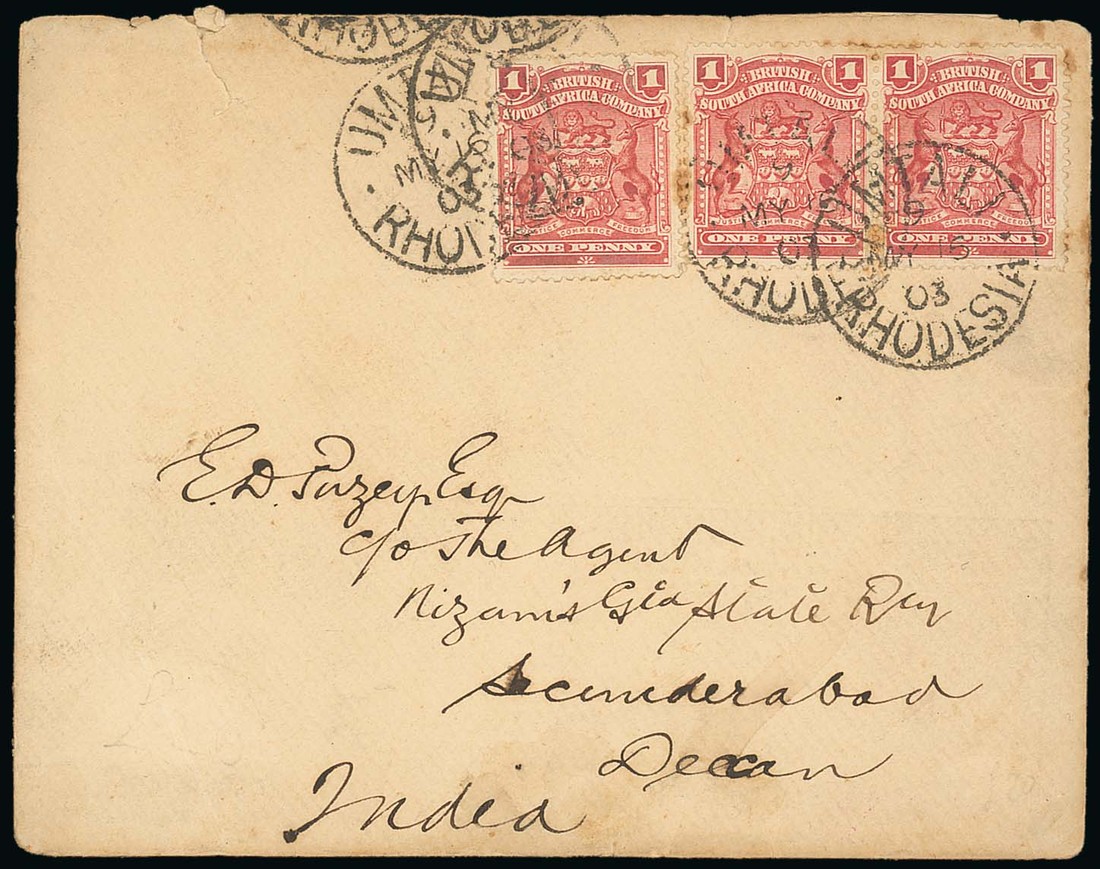 1 1
BRITISH
SOUTH AFRICA COMPANY
JUSTICE COMMERCE FREEDOM
ONE PENNY
1 1
BRITISH
SOUTH AFRICA COMPANY
JUSTICE COMMERCE FREEDOM
ONE PENNY
1 1
BRITISH
SOUTH AFRICA COMPANY
JUSTICE COMMERCE FREEDOM
ONE PENNY
RHODESIA
9
MY 15
03
RHODESIA
E. D. Puzey Esq
c/o The Agent
Nizam's Gtd State Rwy
Secunderabad
Deccan
India